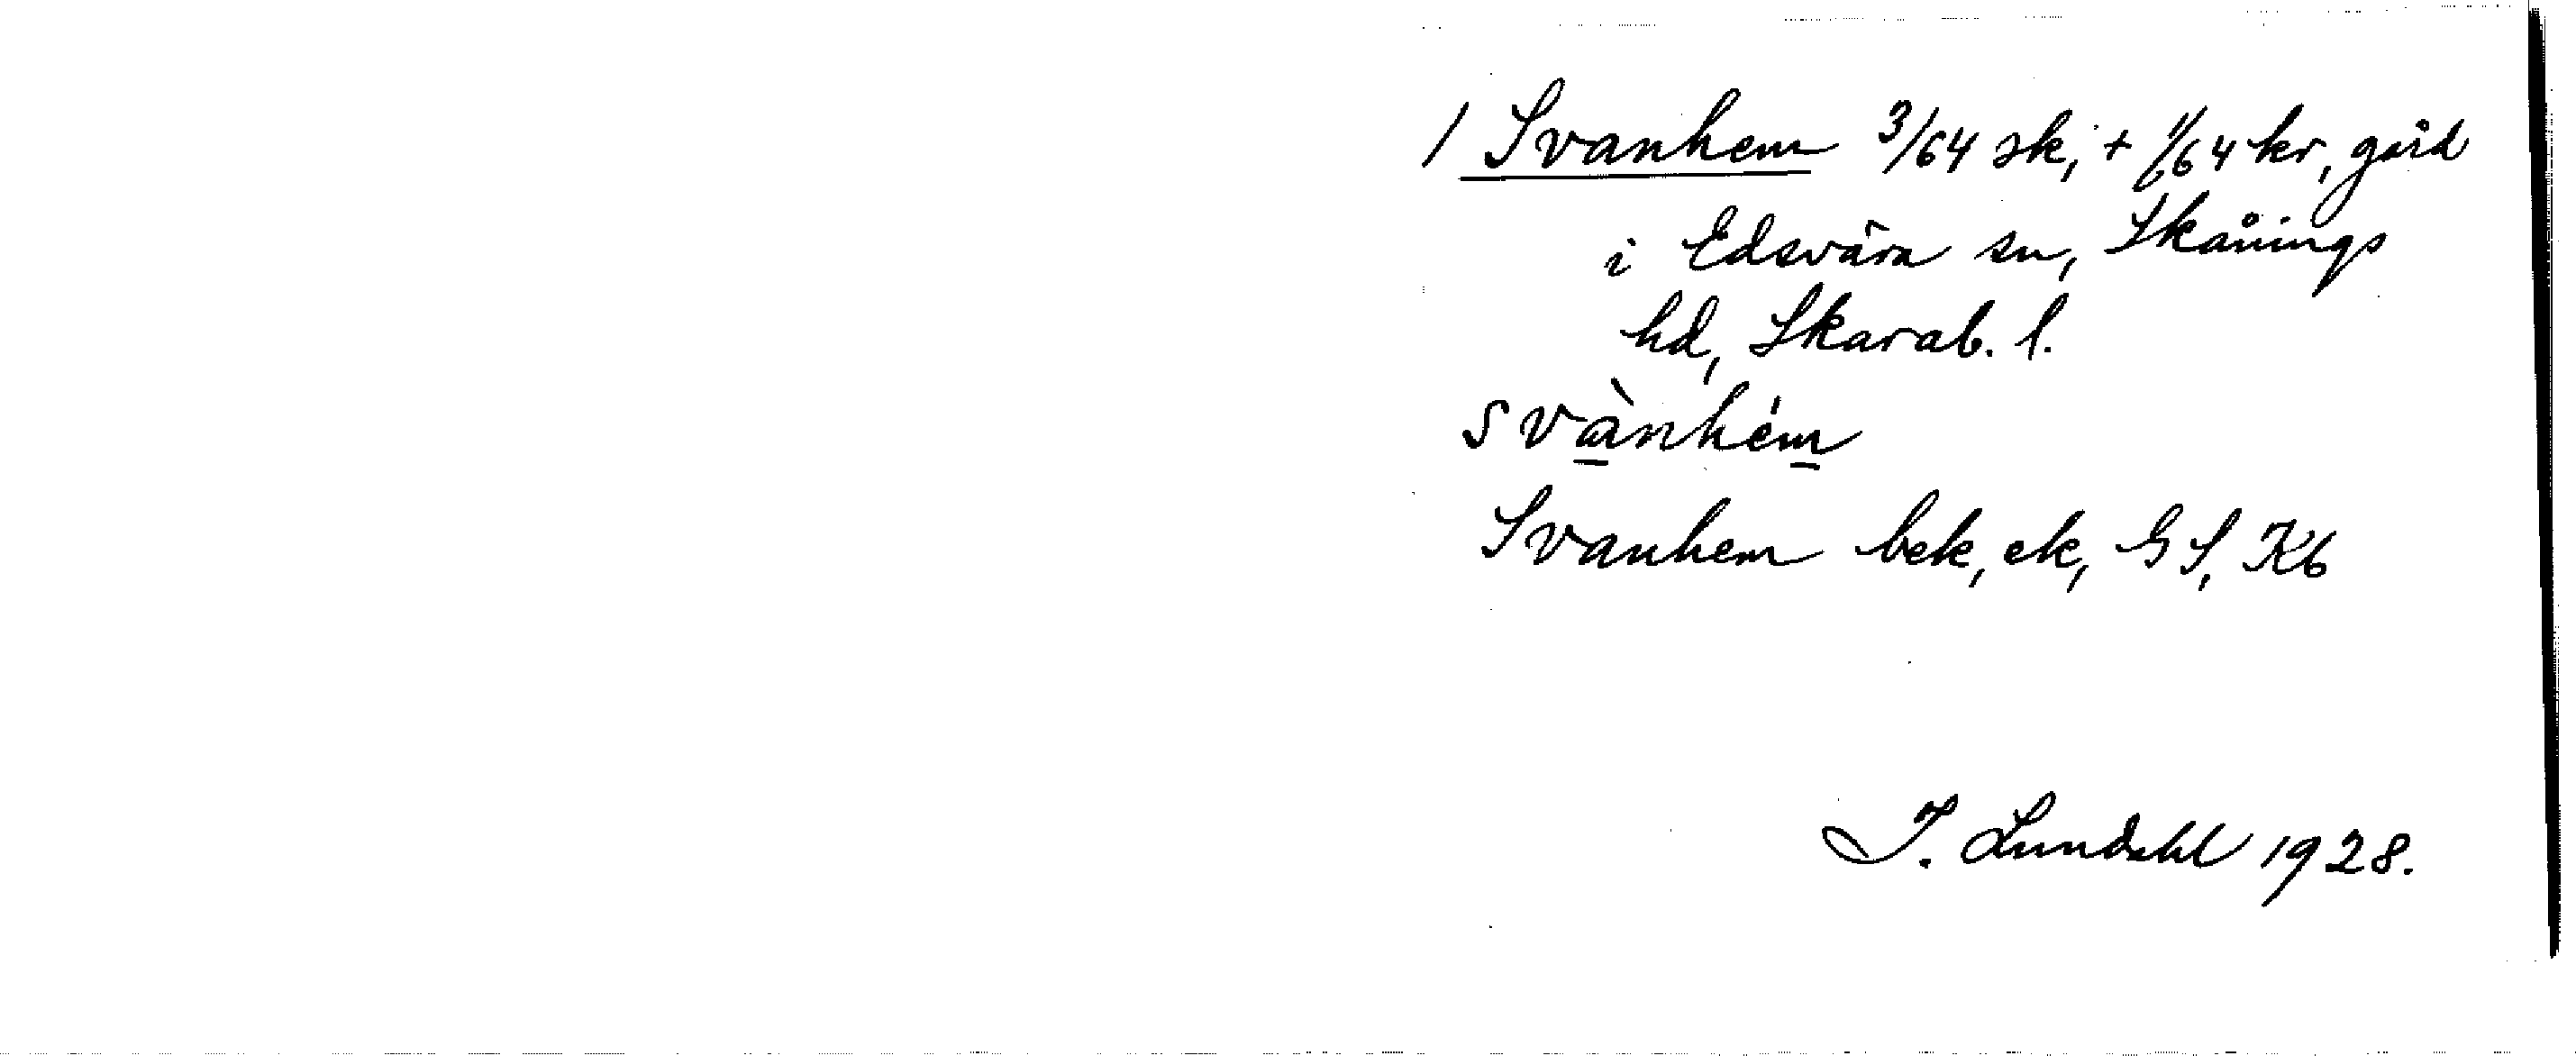 / Svanhem 3/64 sk, + 1/64 kr, gård
i Edsvära sn, Skånings
hd, Skarab. l.
svànhém
Svanhem bek, ek, GS, Kb
I. Lundahl 1928.